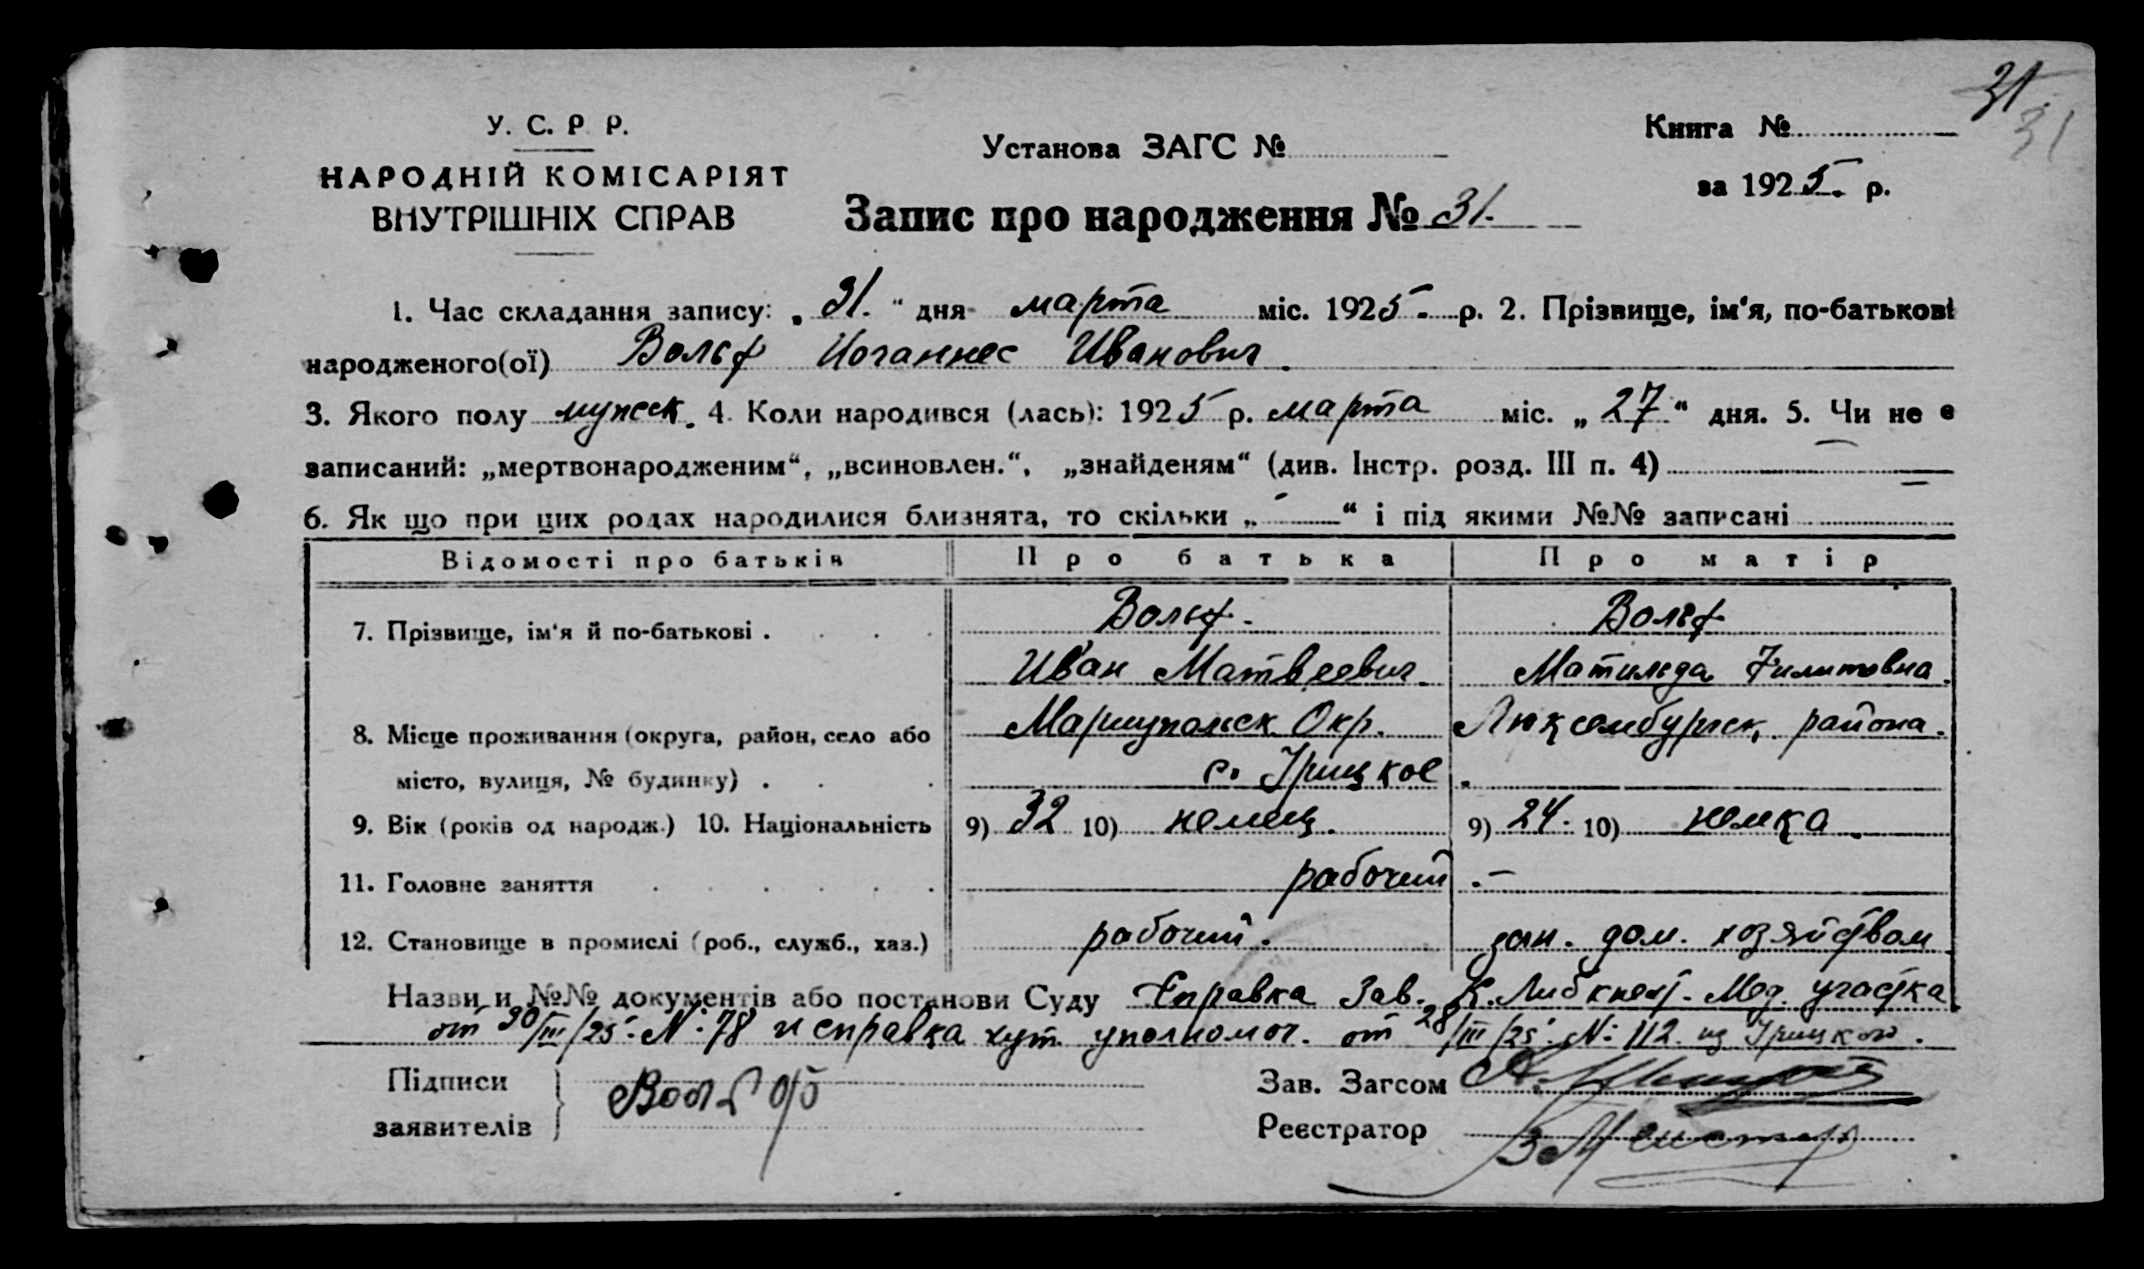 31.
31
У. С. Р. Р.
НАРОДНІЙ КОМІСАРІЯТ
ВНУТРІШНІХ СПРАВ
Установа ЗАГС №
Книга №
за 1925. р.
Запис про народження № 31.
1. Час складання запису: „ 31. “ дня марта міс. 1925. р. 2. Прізвище, ім‘я, по-батькові
народженого(ої) Вольф Иоганнес Иванович.
3. Якого полу мужеск. 4. Коли народився (лась): 1925 р. марта міс. „ 27 “ дня. 5. Чи не є
записаний: „мертвонародженим“, „всиновлен.“, „знайденям“ (див. Інстр. розд. III п. 4) —
6. Як що при цих родах народилися близнята, то скільки „ — “ і під якими №№ записані —
Відомості про батьків Про батька Про матір
7. Прізвище, ім‘я й по-батькові . Вольф. Вольф
Иван Матвеевич. Матильда Филиповна.
8. Місце проживання (округа, район, село або Мариупольск. Окр. Люксембургск. района.
місто, вулиця, № будинку) . с. Урицкое.
9. Вік (років од народж.) 10. Національність 9) 32 10) немец. 9) 24. 10) немка.
11. Головне заняття рабочий . —
12. Становище в промислі (роб., служб., хаз.) рабочий. зан. дом. хозяйством
Назви и №№ документів або постанови Суду Справка Зав. К. Либкнехт. Мед. участка
от 30/III/25. N: 78 и справка хут. уполномоч. от 28/III/25. N: 112. из Урицкого.
Підписи
заявителів } Вольф
Зав. Загсом
Реєстратор